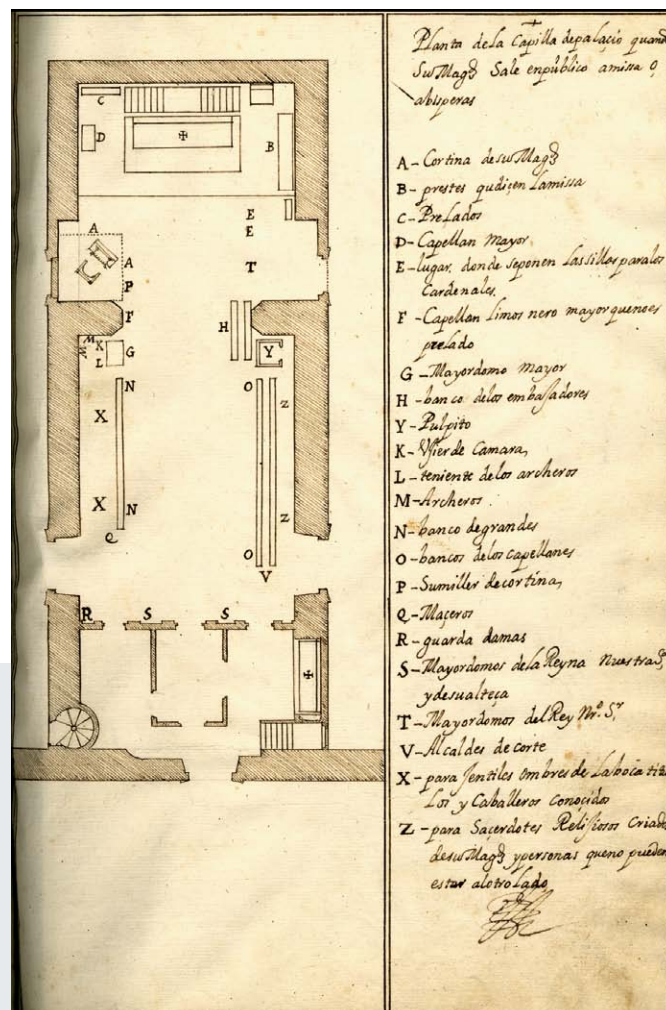 Planta de la Capilla depalaçio quand
Su Magd Sale enpublico amissa o
abisperas
A - Cortina desu Magd
B - prestes qudiçen Lamissa
C - Prelados
D - Capellan Mayor
E - lugar donde seponen Lassillas paralos
Cardenales.
F - Capellan limosnero mayor quenoes
prelado
G - Mayordomo Mayor
H - banco delos embasadores
Y - Pulpito
K - Vsier de Camara,
L - teniente delos archeros
M - Archeros
N - banco de grandes
O - bancos delos capellanes
P - Sumiller decortina,
Q - Maçeros
R - guarda damas
S - Mayordomos dela Reyna Nuestra Sª
y desualteça
T - Mayordomos del Rey Nrº. Sr
V - Alcaldes de corte
X - para Jentiles ombres de Laboca titu
Los y Caballeros conoçidos
Z - para Saçerdotes Relijiosos Criado
desu Magd y personas queno pueden
estar alotro Lado
C
D
B
A
E
E
A
T
P
F
H
M
M
K
G
Y
L
N
O
X
Z
X
N
Z
Q
O
V
R
S
S